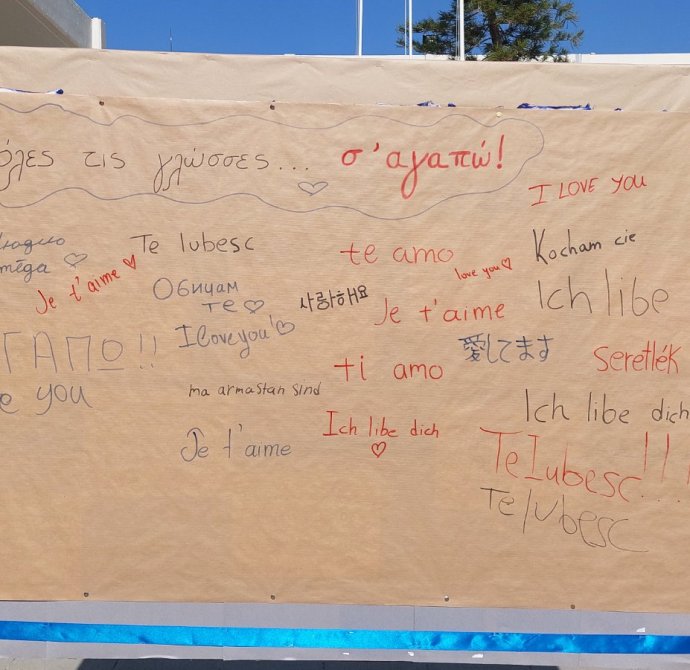 όλες τις γλώσσες... σ'αγαπώ!
I LOVE YOU
Te Iubesc
te amo
Kocham cie
love you
Je t'aime
Обичам
те
사랑해요
Je t'aime
Ich libe
I love you
愛してます
seretlék
ΓΑΠΩ!!
ti amo
you
ma armastan sind
Ich libe dich
Ich libe dich
Je t'aime
Te Iubesc!!!
Te Iubesc